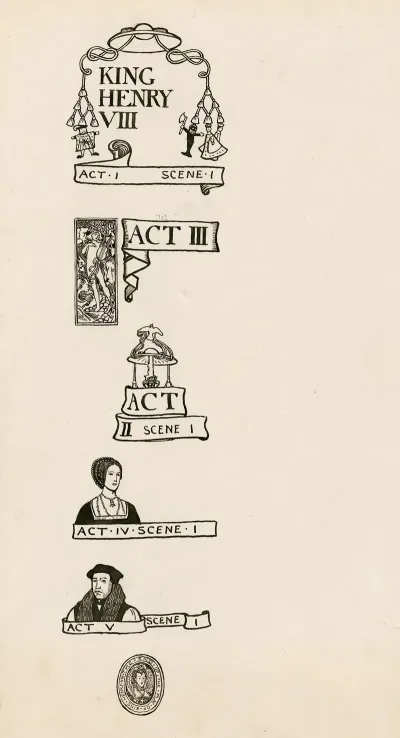 KING
HENRY
VIII
ACT·I SCENE·I
ACT III
ACT
II SCENE I
ACT·IV·SCENE·I
ACT V SCENE I